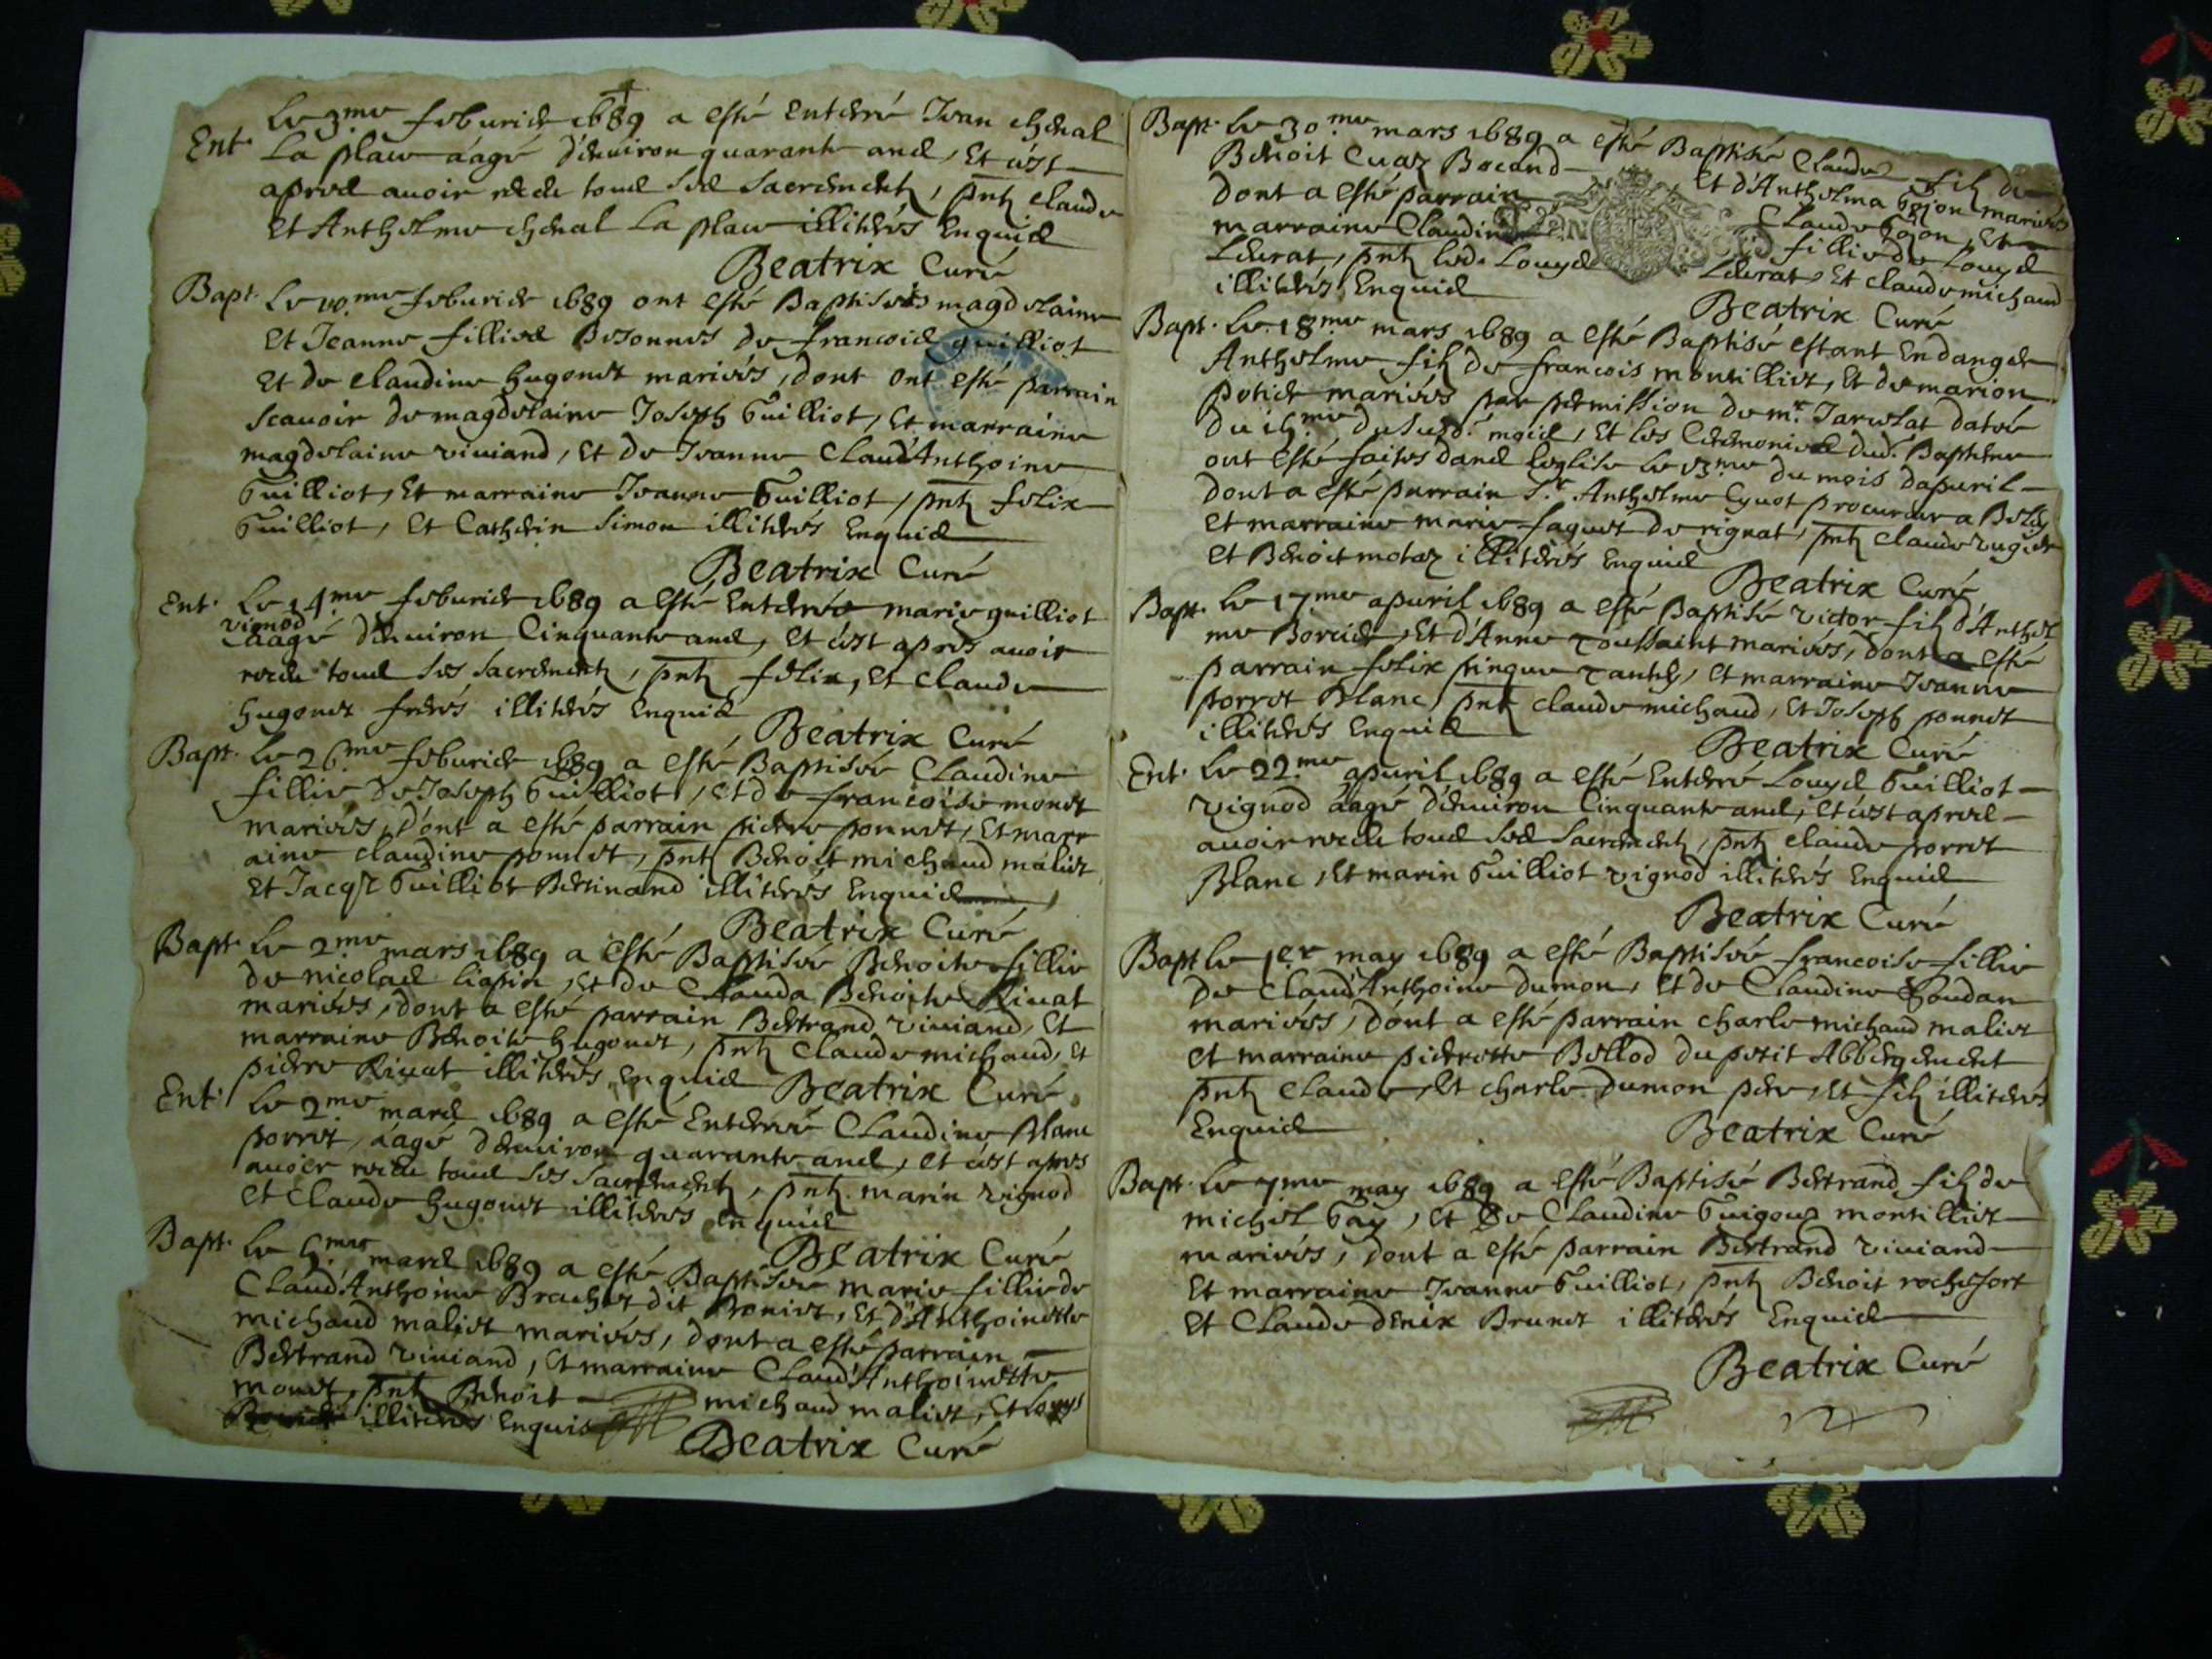 Le 3.me feburier 1689 a esté Enterré Jean cheval
Ent. La place áagé d'environ quarante ans, Et c'est
apres avoir receu tous ses sacrements, pnts claude
Et Anthelme cheval La place illiterés Enquis
Beatrix Curé
Bapt. Le 10.me feburier 1689 ont esté Baptisées magdelaine
Et Jeanne fillies Besonnes de francois guilliot
Et de claudine hugonet mariées, dont ont esté parrain
scavoir de magdelaine Joseph Guilliot, Et marraine
magdelaine viviand, Et de Jeanne Claud'Anthoine
Guilliot, Et marraine Jeanne Guilliot, pnts felix
Guilliot, Et Catherin simon illiterés Enquis
Beatrix Curé
Ent. Le 14.me feburier 1689 a esté Enterrée marie guilliot
vignod
áagé d'environ Cinquante ans, Et c'est aprés avoir
receu tous ses sacrements, pnts felix, Et claude
hugonet freres illiterés Enquis
Beatrix Curé
Bapt. Le 26.me feburier 1689 a esté Baptisée Claudine
fillie de Joseph Guilliot, et de francoise monet
mariées, dont a esté parrain pierre ponnet, Et marr
aine claudine ponnet, pnts Benoit michaud maliet
Et Jacq. Guilliot Bertinand illiterés Enquis
Beatrix Curé
Bapt. Le 2.me mars 1689 a esté Baptisée Benoite fillie
de nicolas liapin, Et de Clauda Benoite Rivat
mariées, dont a esté parrain Bertrand viviand, Et
marraine Benoite hugonet, pnts claude michaud, et
pierre Rivat illiterés Enquis Beatrix Curé
Ent. Le 2.me mars 1689 a esté Enterrée Claudine Blanc
porret, áagé d'environ quarante ans, et c'est apres
avoir receu tous ses sacrements, pnts marin vignod
et claude hugonet illiterés enquis
Beatrix Curé
Bapt. Le 5.me mars 1689 a esté Baptisée marie fillie de
Claud'Anthoine Brachet dit Boniet, Et d'Anthoinette
michaud maliet mariées, dont a esté parrain
Bertrand viviand, Et marraine Claud'Anthoinette
monet, pnts Benoit michaud maliet, Et Louys
illiterés Enquis
Beatrix Curé
Bapt. Le 30.me mars 1689 a esté Baptisé Claude fils de
Benoit Cuaz Bocand Et d'Anthelma Gojon mariées
dont a esté parrain Claude Gojon, Et
marraine Claudine fillie de Louys
Leurat, pnts led. Louys Leurat, Et claude michaud
illiterés Enquis
Beatrix Curé
Bapt. Le 18.me mars 1689 a esté Baptisé estant En danger
Anthelme fils de francois montilliet, Et de marion
potier mariées par permission de mr. Jarcelat datée
du 15.me du susd. mois, Et les Ceremonies dud. Bapteme
ont esté faites dans leglise le 13.me du mois dapuril
dont a esté parrain Sr. Anthelme Cyvot procureur a Belley
et marraine marie faquet de rignat, pnts claude
et Benoit motaz illiterés Enquis
Beatrix Curé
Bapt. Le 17.me apuril 1689 a esté Baptisé victor fils d'Anthel
me Borcier, Et d'Anne Toussaint mariées, dont a esté
parrain felix pingue Tantes, Et marraine Jeanne
porret Blanc, pnts claude michaud, Et Joseph ponnet
illiterés Enquis
Beatrix Curé
Ent. Le 22.me apuril 1689 a esté Enterré Louys Guilliot
vignod áagé d'environ Cinquante ans, et c'est apres
avoir receu tous ses sacrements, pnts claude porret
Blanc, Et marin Guilliot vignod illiterés Enquis
Beatrix Curé
Bapt Le 1er may 1689 a esté Baptisée francoise fillie
de Claud'Anthoine dumon, Et de Claudine Goudan
mariées, dont a esté parrain charle michaud maliet
et marraine pierrette Bellod du petit Abbergement
pnts claude, Et charle dumon pere, Et fils illiterés
Enquis
Beatrix Curé
Bapt. Le 7.me may 1689 a esté Baptisé Bertrand fils de
michel Gay, Et de Claudine Guigouz montilliet
mariées, dont a esté parrain Bertrand viviand
Et marraine Jeanne Guilliot, pnts Benoit rochefort
Et Claude denix Brunet illiterés Enquis
Beatrix Curé